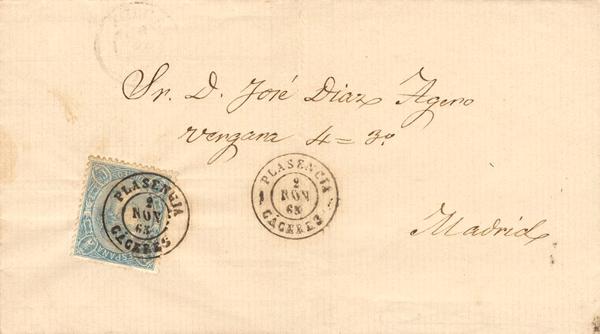 Sr. D. José Diaz Agero
Vergara 4 = 3º
Madrid
PLASENCIA
2
NOV
65
CACERES
PLASENCIA
2
NOV
65
CACERES
ESPAÑA